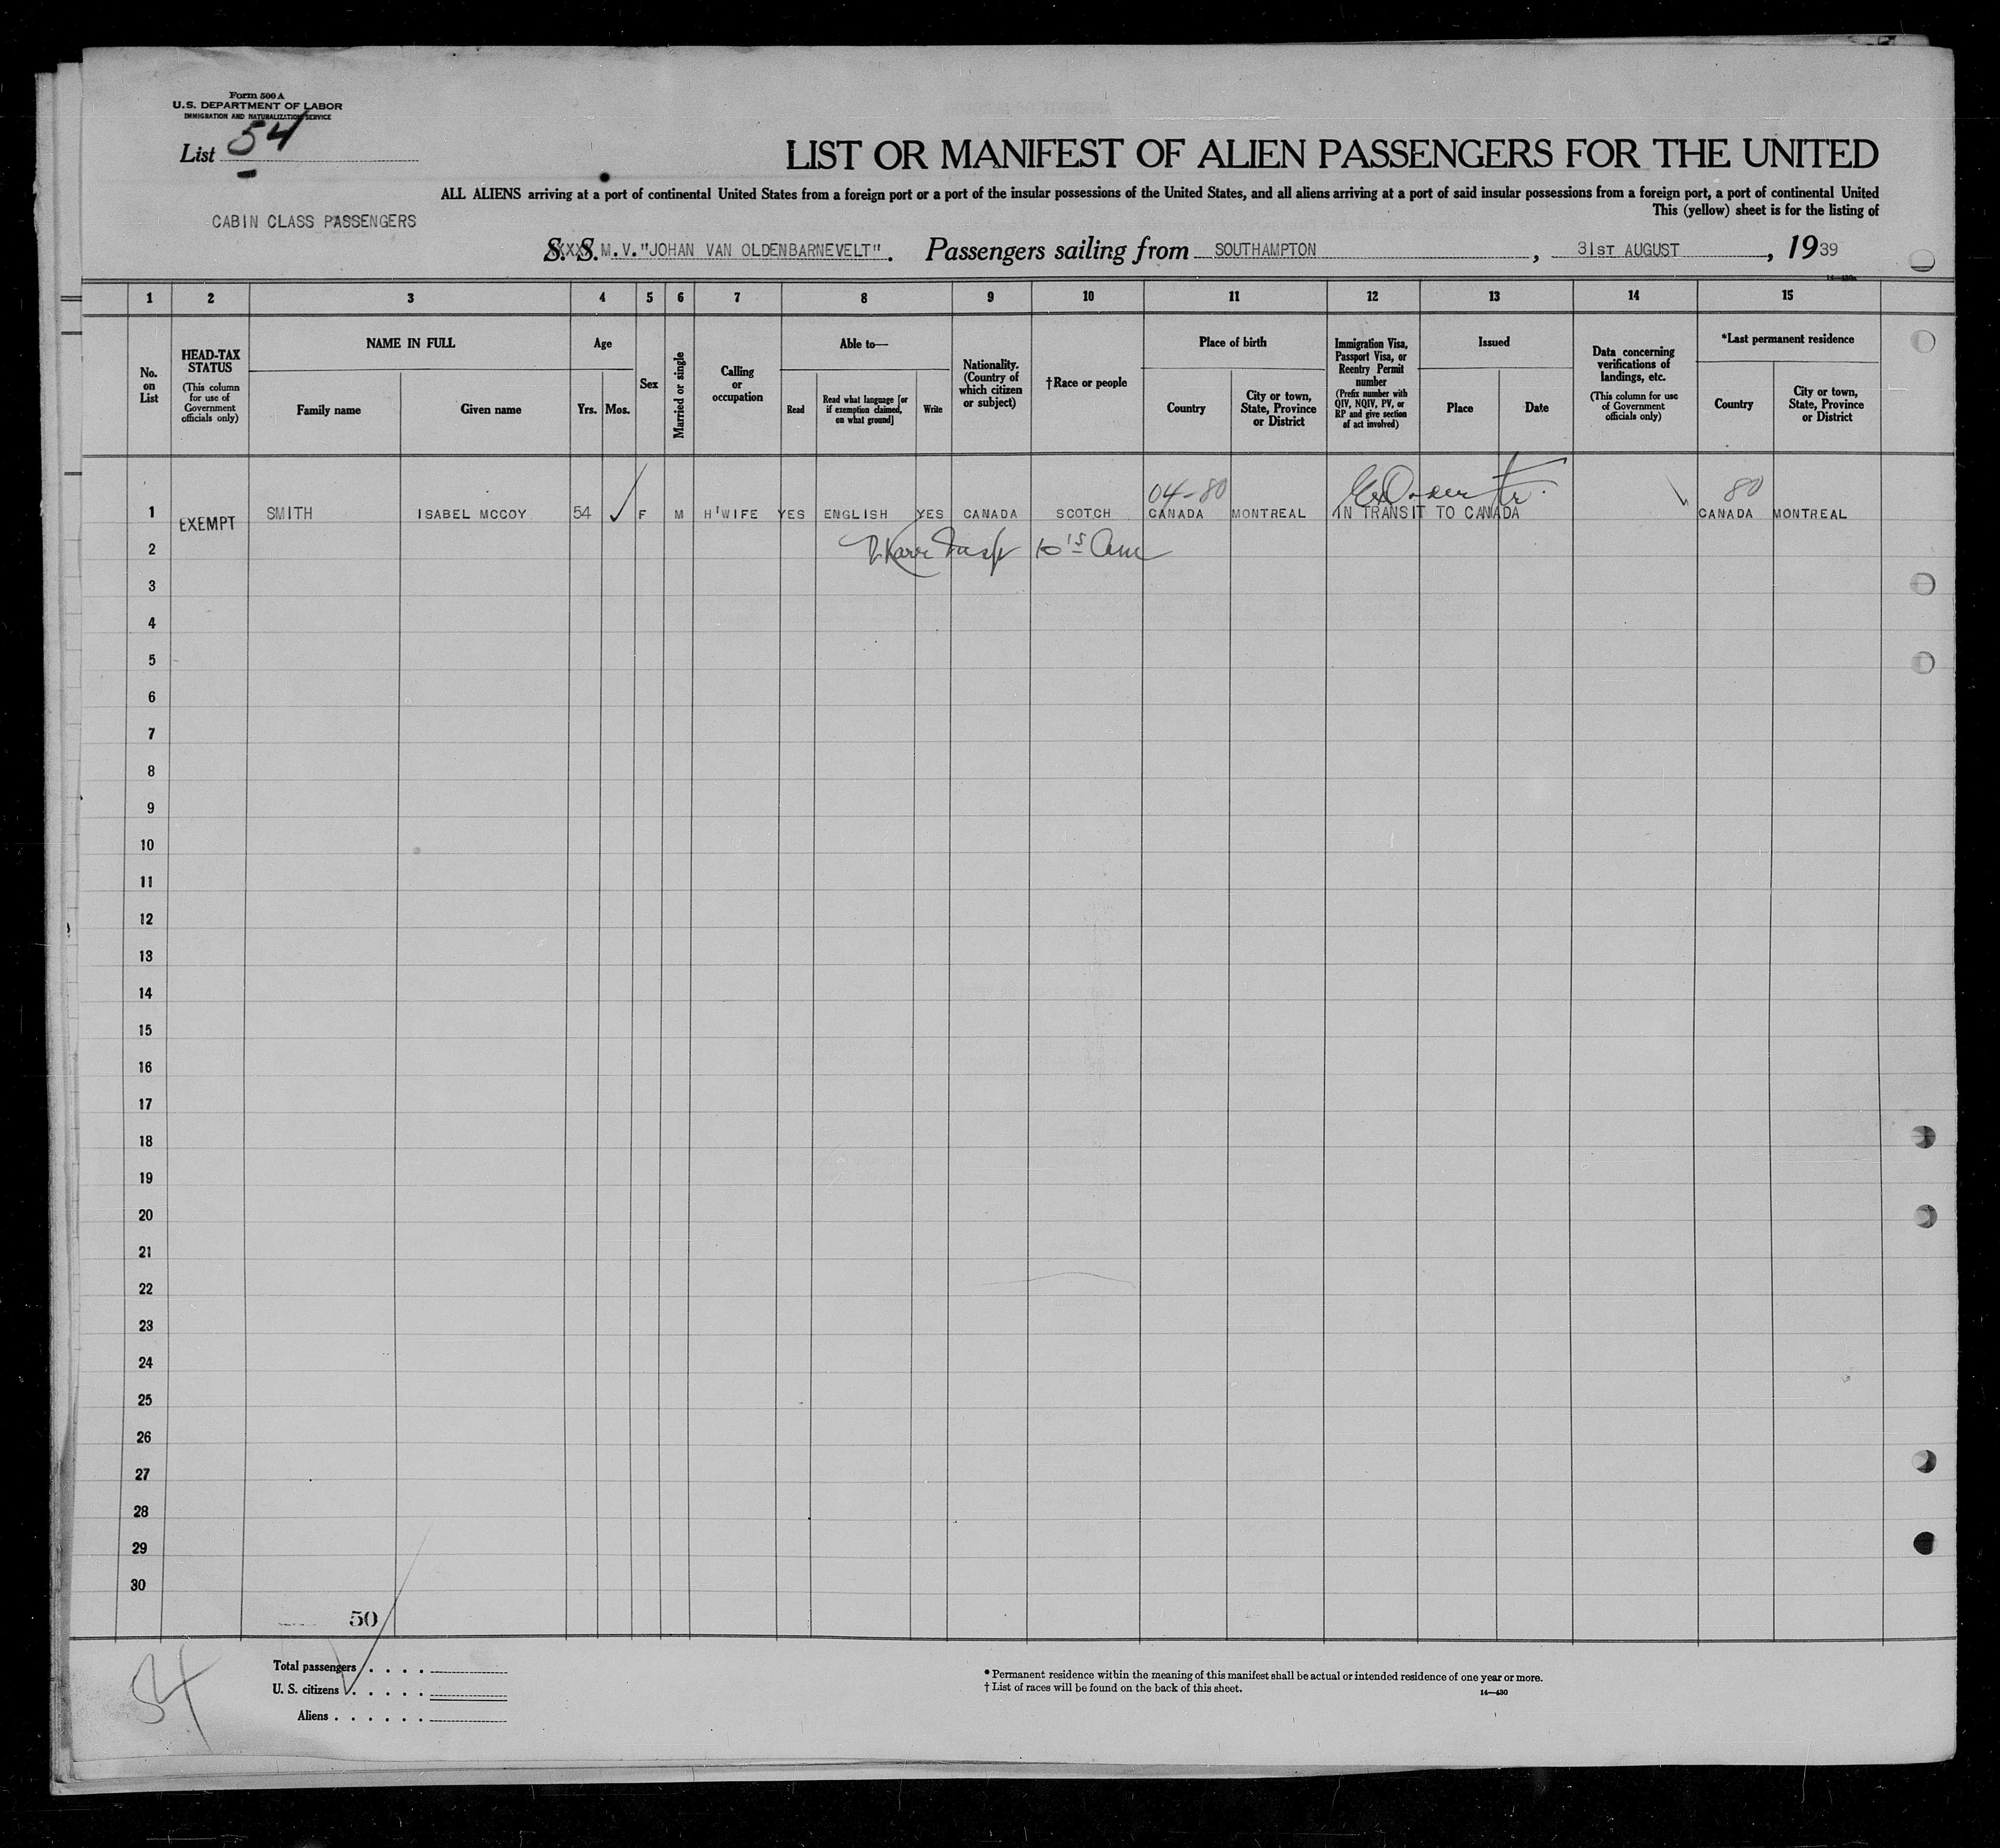 Form 500 A
U.S. DEPARTMENT OF LABOR
IMMIGRATION AND NATURALIZATION SERVICE
List 54
LIST OR MANIFEST OF ALIEN PASSENGERS FOR THE UNITED
ALL ALIENS arriving at a port of continental United States from a foreign port or a port of the insular possessions of the United States, and all aliens arriving at a port of said insular possessions from a foreign port, a port of continental United
This (yellow) sheet is for the listing of
CABIN CLASS PASSENGERS
S. S. M.V."JOHAN VAN OLDENBARNEVELT". Passengers sailing from SOUTHAMPTON, 31ST AUGUST, 1939
1 2 3 4 5 6 7 8 9 10 11 12 13 14 15
No. on List
HEAD-TAX STATUS
(This column for use of Government officials only)
NAME IN FULL
Family name
Given name
Age
Yrs.
Mos.
Sex
Married or single
Calling or occupation
Able to—
Read
Read what language [or if exemption claimed, on what ground]
Write
Nationality. (Country of which citizen or subject)
†Race or people
Place of birth
Country
City or town, State, Province or District
Immigration Visa, Passport Visa, or Reentry Permit number
(Prefix number with QIV, NQIV, PV, or RP and give section of act involved)
Issued
Place
Date
Data concerning verifications of landings, etc.
(This column for use of Government officials only)
*Last permanent residence
Country
City or town, State, Province or District
04-80
80
1 EXEMPT SMITH ISABEL MCCOY 54 F M H'WIFE YES ENGLISH YES CANADA SCOTCH CANADA MONTREAL IN TRANSIT TO CANADA CANADA MONTREAL
2
3
4
5
6
7
8
9
10
11
12
13
14
15
16
17
18
19
20
21
22
23
24
25
26
27
28
29
30
50
54
Total passengers
U. S. citizens
Aliens
* Permanent residence within the meaning of this manifest shall be actual or intended residence of one year or more.
† List of races will be found on the back of this sheet.
14—430